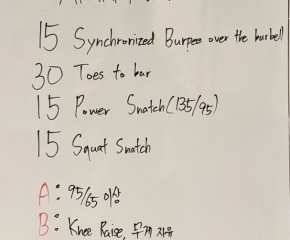 15 Synchronized Burpee over the barbell
30 Toes to bar
15 Power Snatch (135/95)
15 Squat Snatch
A: 95/65 이상
B: Knee Raise, 무게 자유